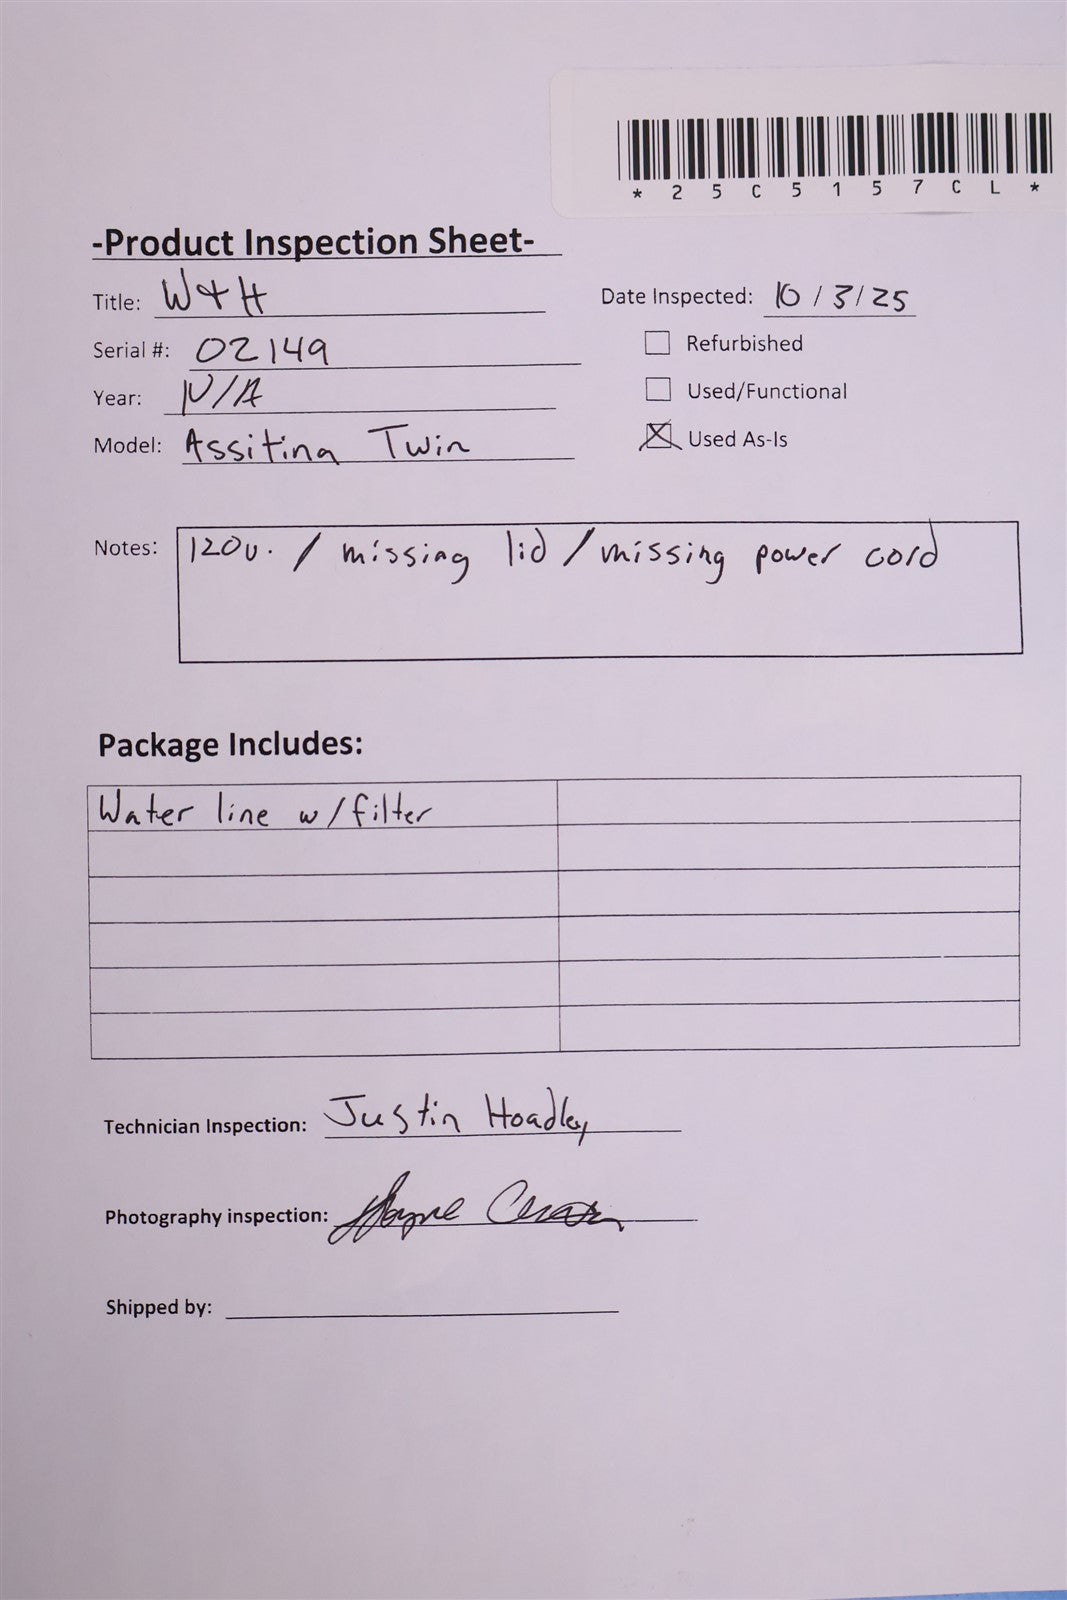 *25C5157CL*
-Product Inspection Sheet-
Title: W&H
Date Inspected: 10/3/25
Serial #: 02149
Refurbished
Year: N/A
Used/Functional
Model: Assitina Twin
Used As-Is
Notes: 120v. / missing lid / missing power cord
Package Includes:
Water line w/filter
Technician Inspection: Justin Hoadley
Photography inspection:
Shipped by: